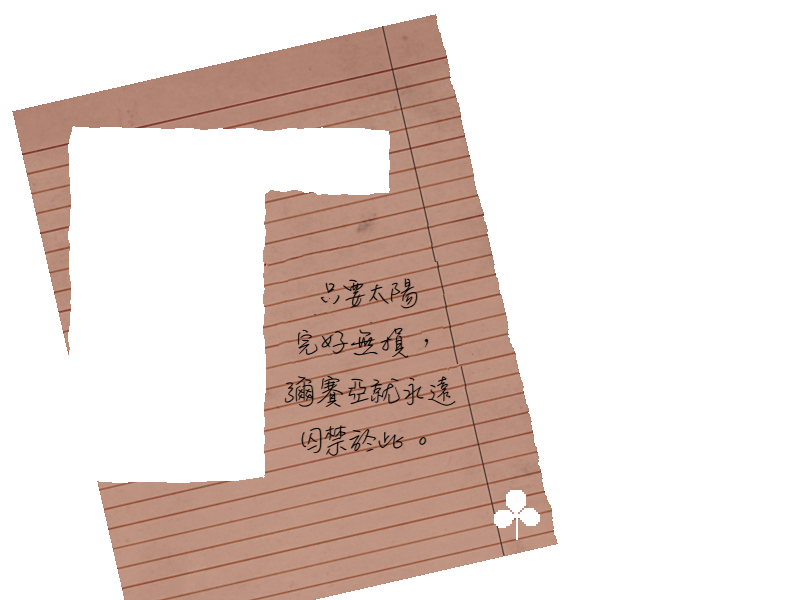 只要太陽
完好無損，
彌賽亞就永遠
囚禁於此。